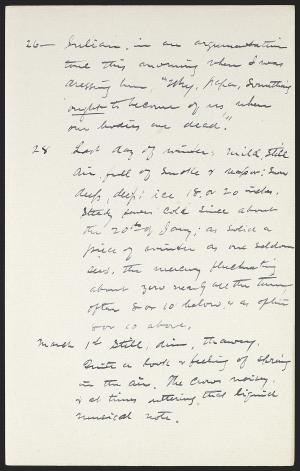 26— Julian, in an argumentative
tone this morning when I was
dressing him, "Why, papa, something
ought to become of us when
our bodies are dead."
28 Last day of winter: mild, still
air full of smoke & vapor; snow
deep, deep; ice 18 or 20 inches.
Steady severe cold since about
the 20th of Jany; as solid a
piece of winter as one seldom
sees, the mercury fluctuating
about zero nearly all the time,
often 8 or 10 below, & as often
8 or 10 above.
March 1st Still, dim, thawing.
Quite a look & feeling of spring
in the air. The crows noisy,
& at times uttering that liquid
musical note.